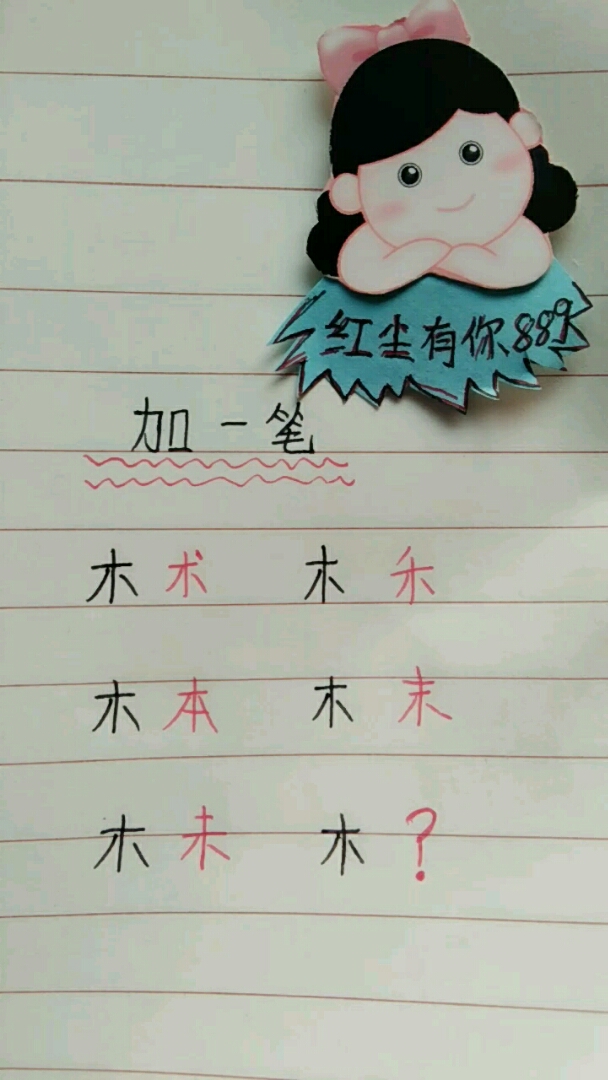 红尘有你889
加一笔
木 术 木 禾
木 本 木 末
木 未 木 ?